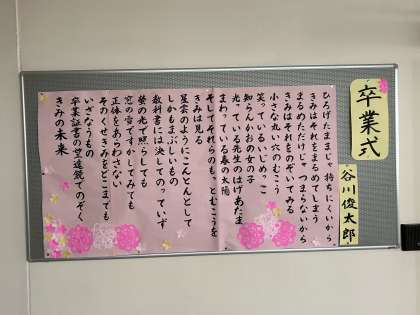 卒業式
谷川俊太郎
ひろげたままじゃ持ちにくいから
きみはそれをまるめてしまう
まるめただけじゃつまらないから
きみはそれをのぞいてみる
小さな丸い穴のむこう
笑っているいじめっこ
知らんかおの女の子
光っている先生のはげあたま
まわっている春の太陽
そしてそれらのもっとむこうを
きみは見る
星雲のようにこんとんとして
しかもまぶしいもの
教科書には決してのっていず
蛍の光で照らしても
窓の雪ですかしてみても
正体をあらわさない
そのくせきみをどこまでも
いざなうもの
卒業証書の望遠鏡でのぞく
きみの未来